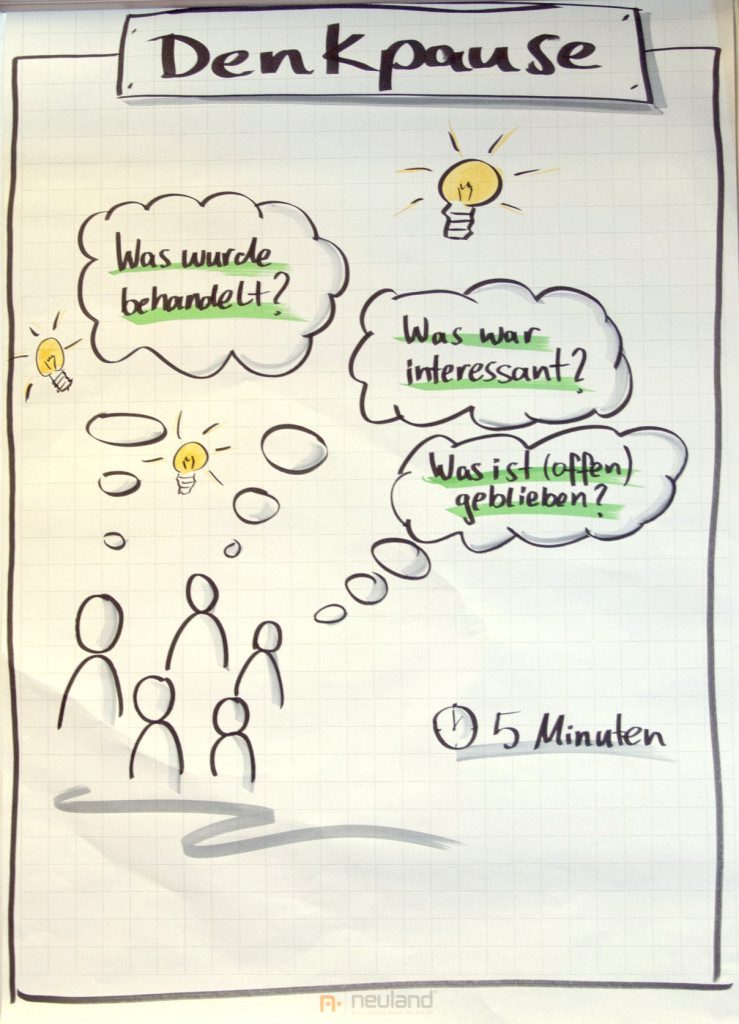 Denkpause
Was wurde
behandelt?
Was war
interessant?
Was ist (offen)
geblieben?
5 Minuten
neuland